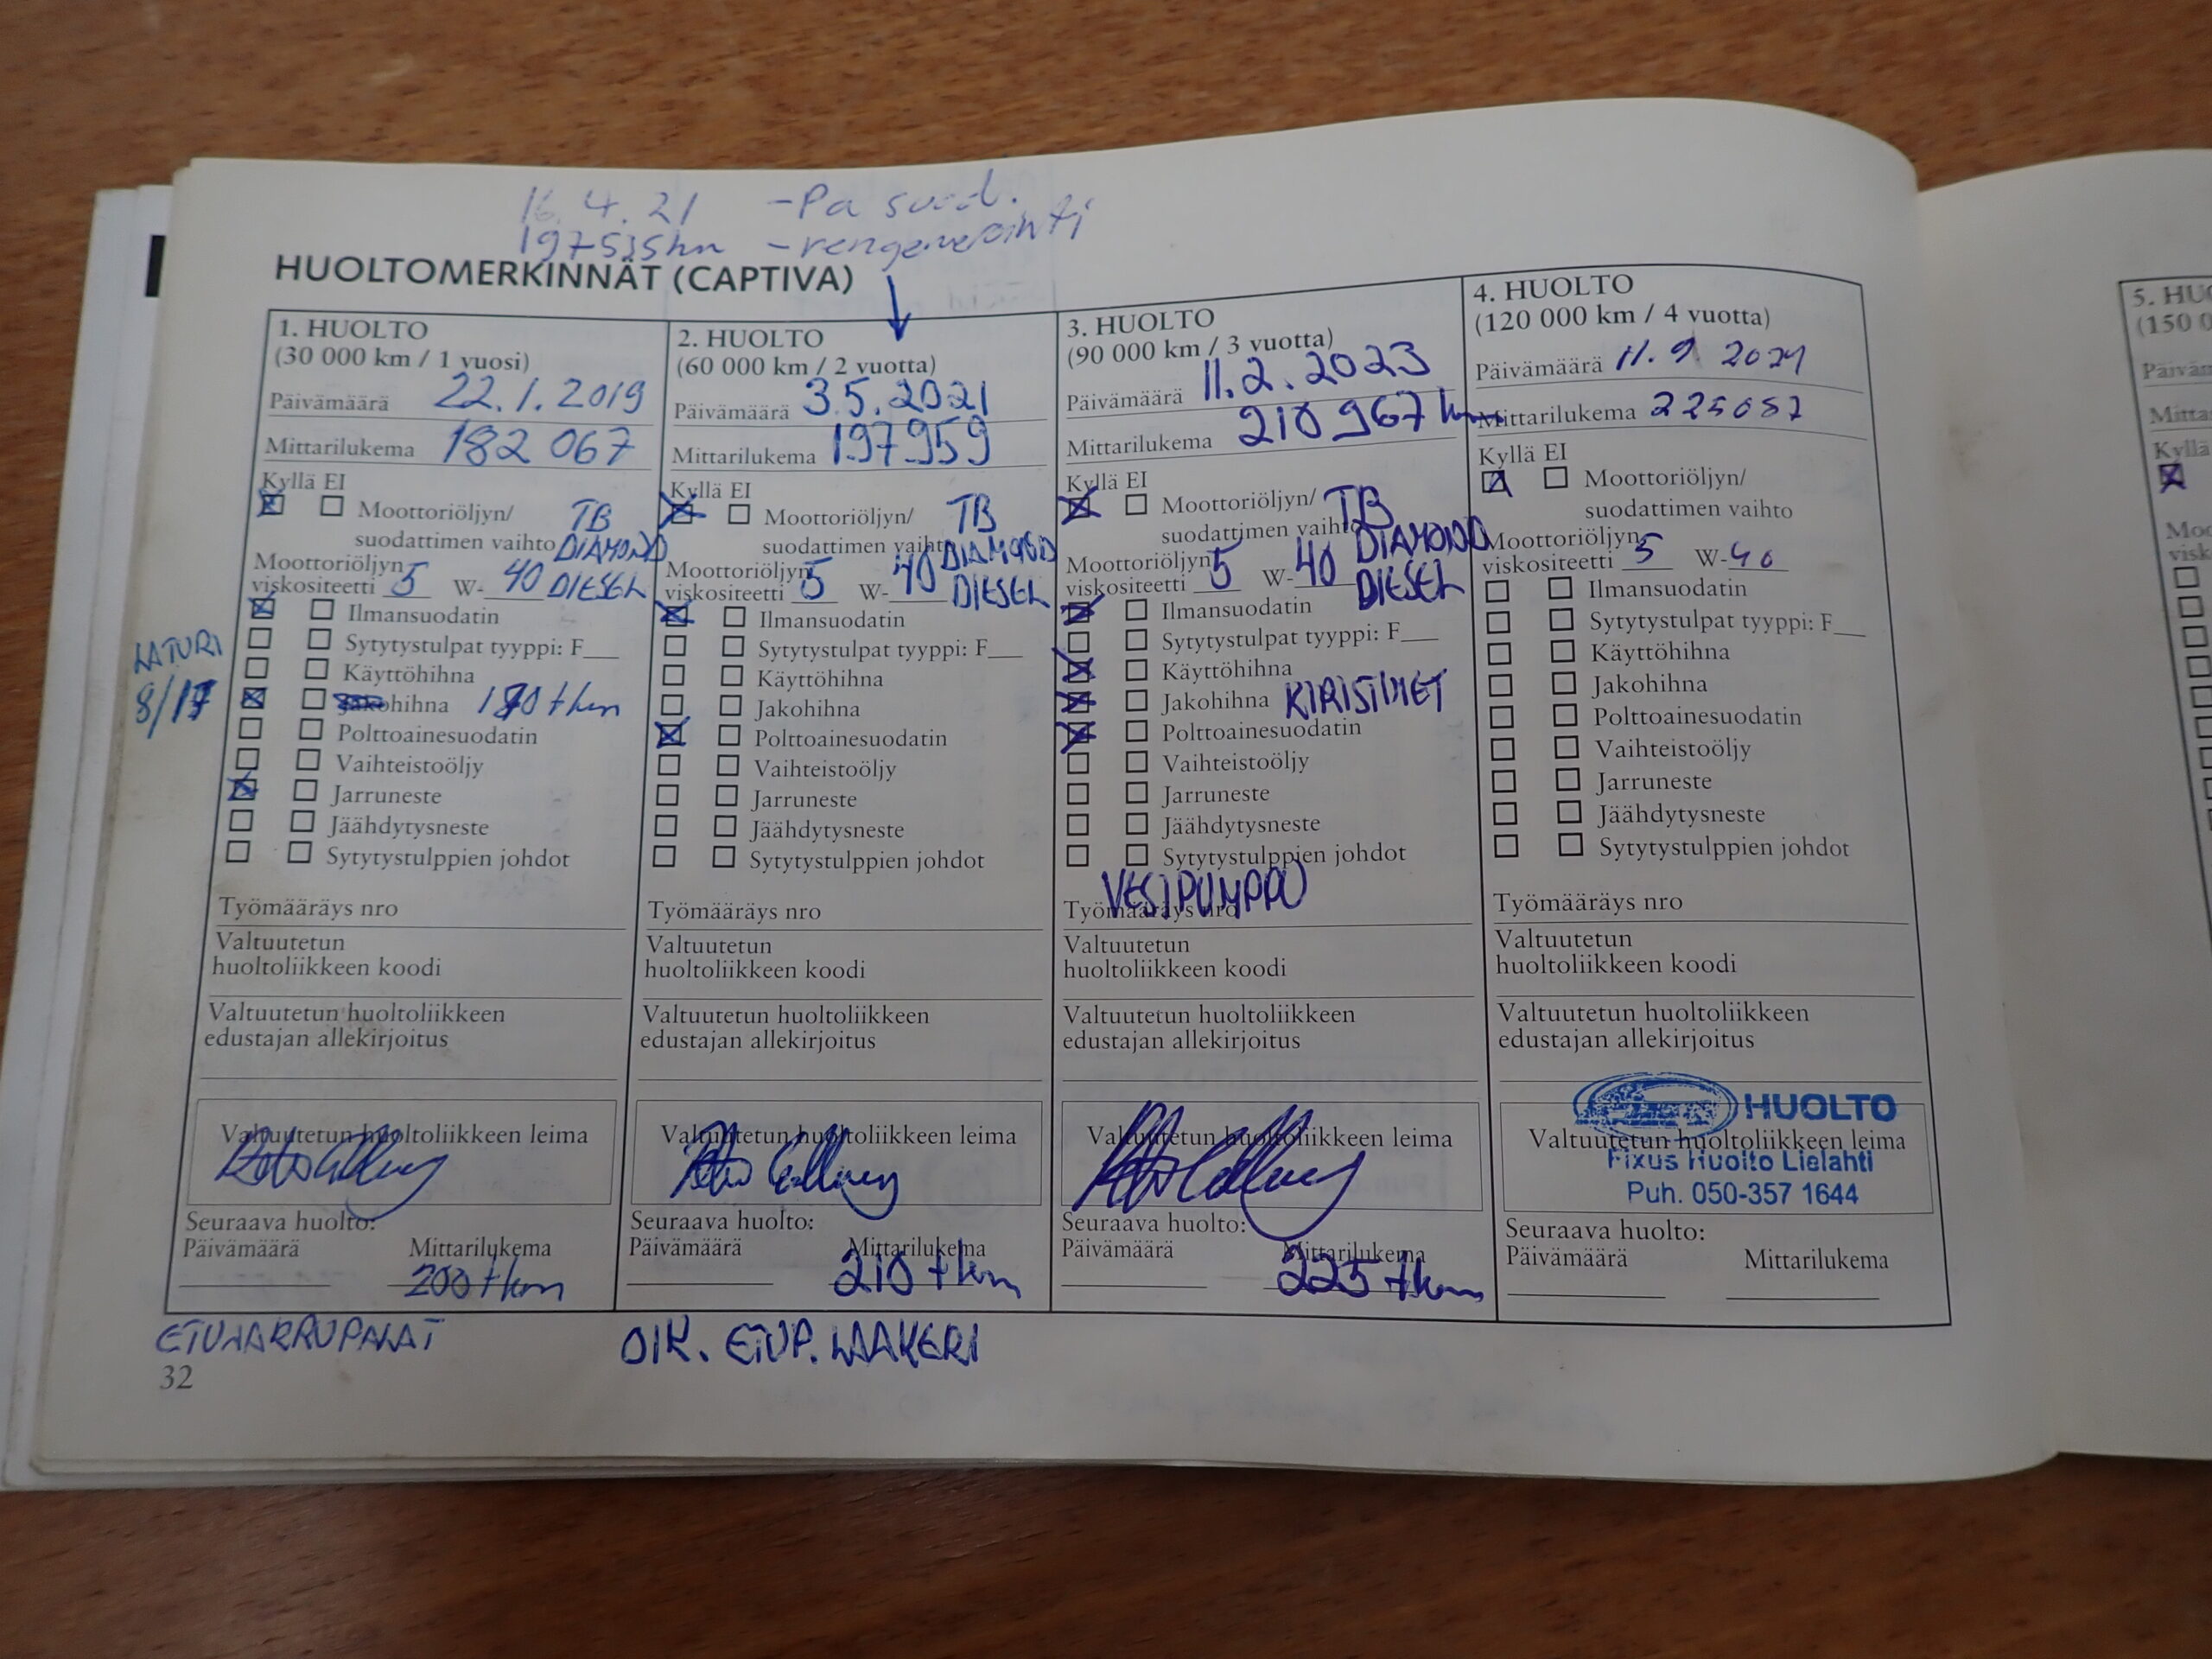 16.4.21 -Pa suod.
197535km -rengenerointi
HUOLTOMERKINNÄT (CAPTIVA)
1. HUOLTO
(30 000 km / 1 vuosi)
Päivämäärä 22.1.2019
Mittarilukema 182 067
Kyllä EI
Moottoriöljyn/ TB
suodattimen vaihto DIAMOND
Moottoriöljyn
viskositeetti 5 W-40 DIESEL
Ilmansuodatin
Sytytystulpat tyyppi: F
LATURI
Käyttöhihna
8/17
hihna 180 tkm
Polttoainesuodatin
Vaihteistoöljy
Jarruneste
Jäähdytysneste
Sytytystulppien johdot
Työmääräys nro
Valtuutetun
huoltoliikkeen koodi
Valtuutetun huoltoliikkeen
edustajan allekirjoitus
Valtuutetun huoltoliikkeen leima
Seuraava huolto:
Päivämäärä Mittarilukema
200 tkm
ETUJARRUPALAT
32
2. HUOLTO
(60 000 km / 2 vuotta)
Päivämäärä 3.5.2021
Mittarilukema 197959
Kyllä EI
Moottoriöljyn/ TB
suodattimen vaihto DIAMOND
Moottoriöljyn
viskositeetti 5 W-40 DIESEL
Ilmansuodatin
Sytytystulpat tyyppi: F
Käyttöhihna
Jakohihna
Polttoainesuodatin
Vaihteistoöljy
Jarruneste
Jäähdytysneste
Sytytystulppien johdot
Työmääräys nro
Valtuutetun
huoltoliikkeen koodi
Valtuutetun huoltoliikkeen
edustajan allekirjoitus
Valtuutetun huoltoliikkeen leima
Seuraava huolto:
Päivämäärä Mittarilukema
210 tkm
OIK. ETUP. LAAKERI
3. HUOLTO
(90 000 km / 3 vuotta)
Päivämäärä 11.2.2023
Mittarilukema 210 967 km
Kyllä EI
Moottoriöljyn/ TB
suodattimen vaihto DIAMOND
Moottoriöljyn
viskositeetti 5 W-40 DIESEL
Ilmansuodatin
Sytytystulpat tyyppi: F
Käyttöhihna
Jakohihna KIRISTIMET
Polttoainesuodatin
Vaihteistoöljy
Jarruneste
Jäähdytysneste
Sytytystulppien johdot
VESIPUMPPU
Työmääräys nro
Valtuutetun
huoltoliikkeen koodi
Valtuutetun huoltoliikkeen
edustajan allekirjoitus
Valtuutetun huoltoliikkeen leima
Seuraava huolto:
Päivämäärä Mittarilukema
225 tkm
4. HUOLTO
(120 000 km / 4 vuotta)
Päivämäärä 11.9 2024
Mittarilukema 225087
Kyllä EI
Moottoriöljyn/
suodattimen vaihto
Moottoriöljyn
viskositeetti 5 W-40
Ilmansuodatin
Sytytystulpat tyyppi: F
Käyttöhihna
Jakohihna
Polttoainesuodatin
Vaihteistoöljy
Jarruneste
Jäähdytysneste
Sytytystulppien johdot
Työmääräys nro
Valtuutetun
huoltoliikkeen koodi
Valtuutetun huoltoliikkeen
edustajan allekirjoitus
HUOLTO
Valtuutetun huoltoliikkeen leima
Fixus Huolto Lielahti
Puh. 050-357 1644
Seuraava huolto:
Päivämäärä Mittarilukema
5. HUO
(150 0
Päiväm
Mitta
Kyllä
Moo
visk